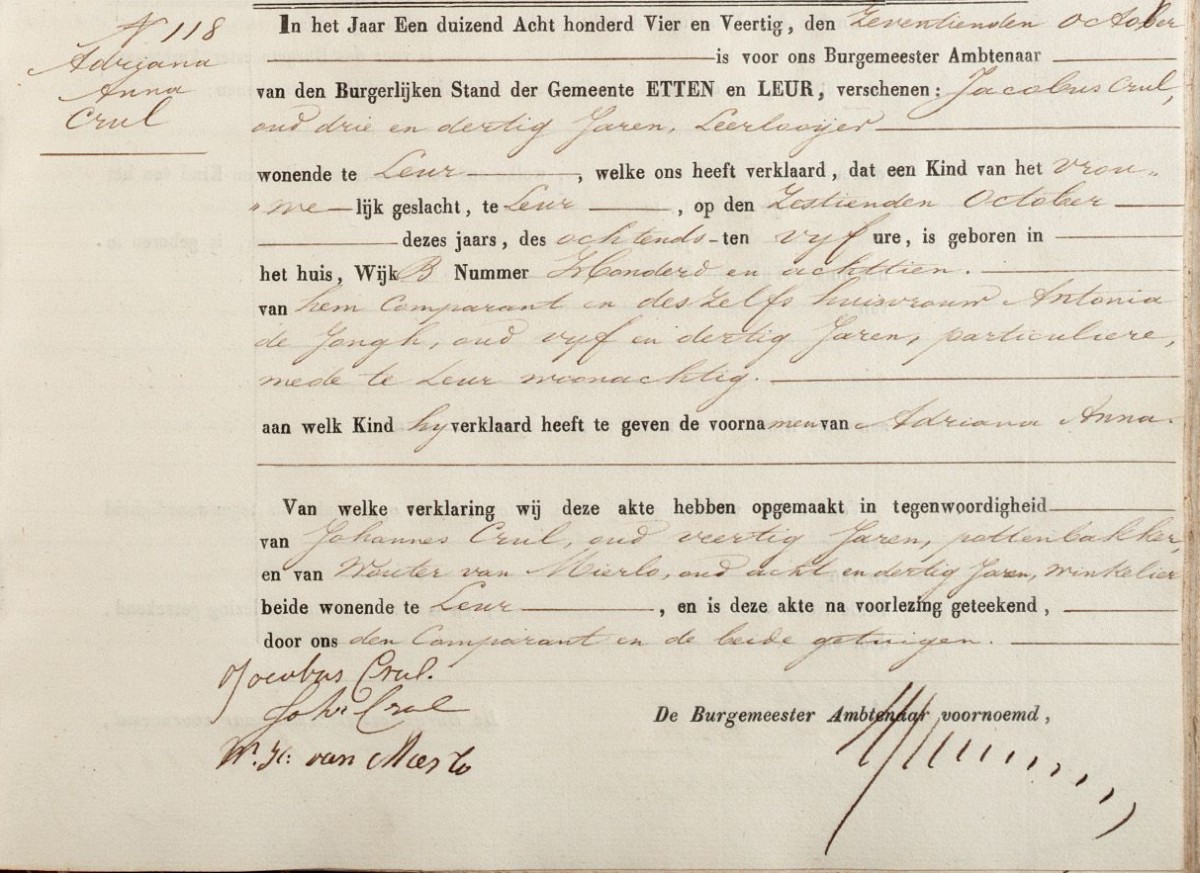 N 118
Adriana
Anna
Crul
In het Jaar Een duizend Acht honderd Vier en Veertig, den Zeventienden October
is voor ons Burgemeester Ambtenaar
van den Burgerlijken Stand der Gemeente ETTEN en LEUR, verschenen: Jacobus Crul,
oud drie en dertig Jaren, Leerlooijer
wonende te Leur, welke ons heeft verklaard, dat een Kind van het vrou„
„we lijk geslacht, te Leur, op den Zestienden October
dezes jaars, des ochtends ten vyf ure, is geboren in
het huis, Wijk B Nummer Honderd en achttien.
van hem Comparant en deszelfs huisvrouw Antonia
de Jongh, oud vyf en dertig Jaren, particuliere,
mede te Leur woonachtig.
aan welk Kind hy verklaard heeft te geven de voornamen van Adriana Anna.
Van welke verklaring wij deze akte hebben opgemaakt in tegenwoordigheid
van Johannes Crul, oud veertig Jaren, pottenbakker,
en van Wouter van Mierlo, oud acht en dertig Jaren, winkelier
beide wonende te Leur, en is deze akte na voorlezing geteekend,
door ons den Comparant en de beide getuigen.
Jacobus Crul.
Joh Crul
De Burgemeester Ambtenaar voornoemd,
W. H. van Mierlo